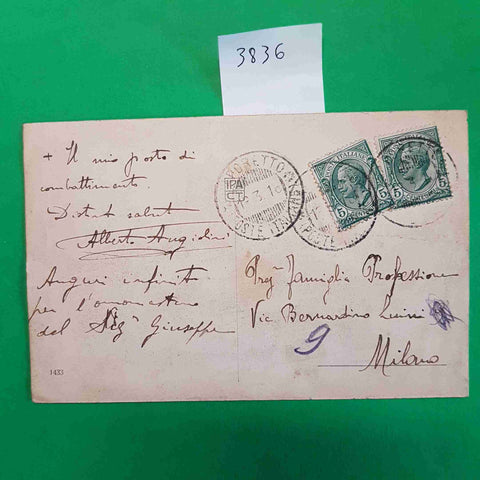 3836
+ Il mio posto di
combattimento.
Distinti saluti
Alberto Angiolini
Auguri infiniti
per l'onomastico
del Sig. Giuseppe
1433
POSTE ITALIANE
5
5
Preg. famiglia Professione
Via Bernardino Luini
9
Milano